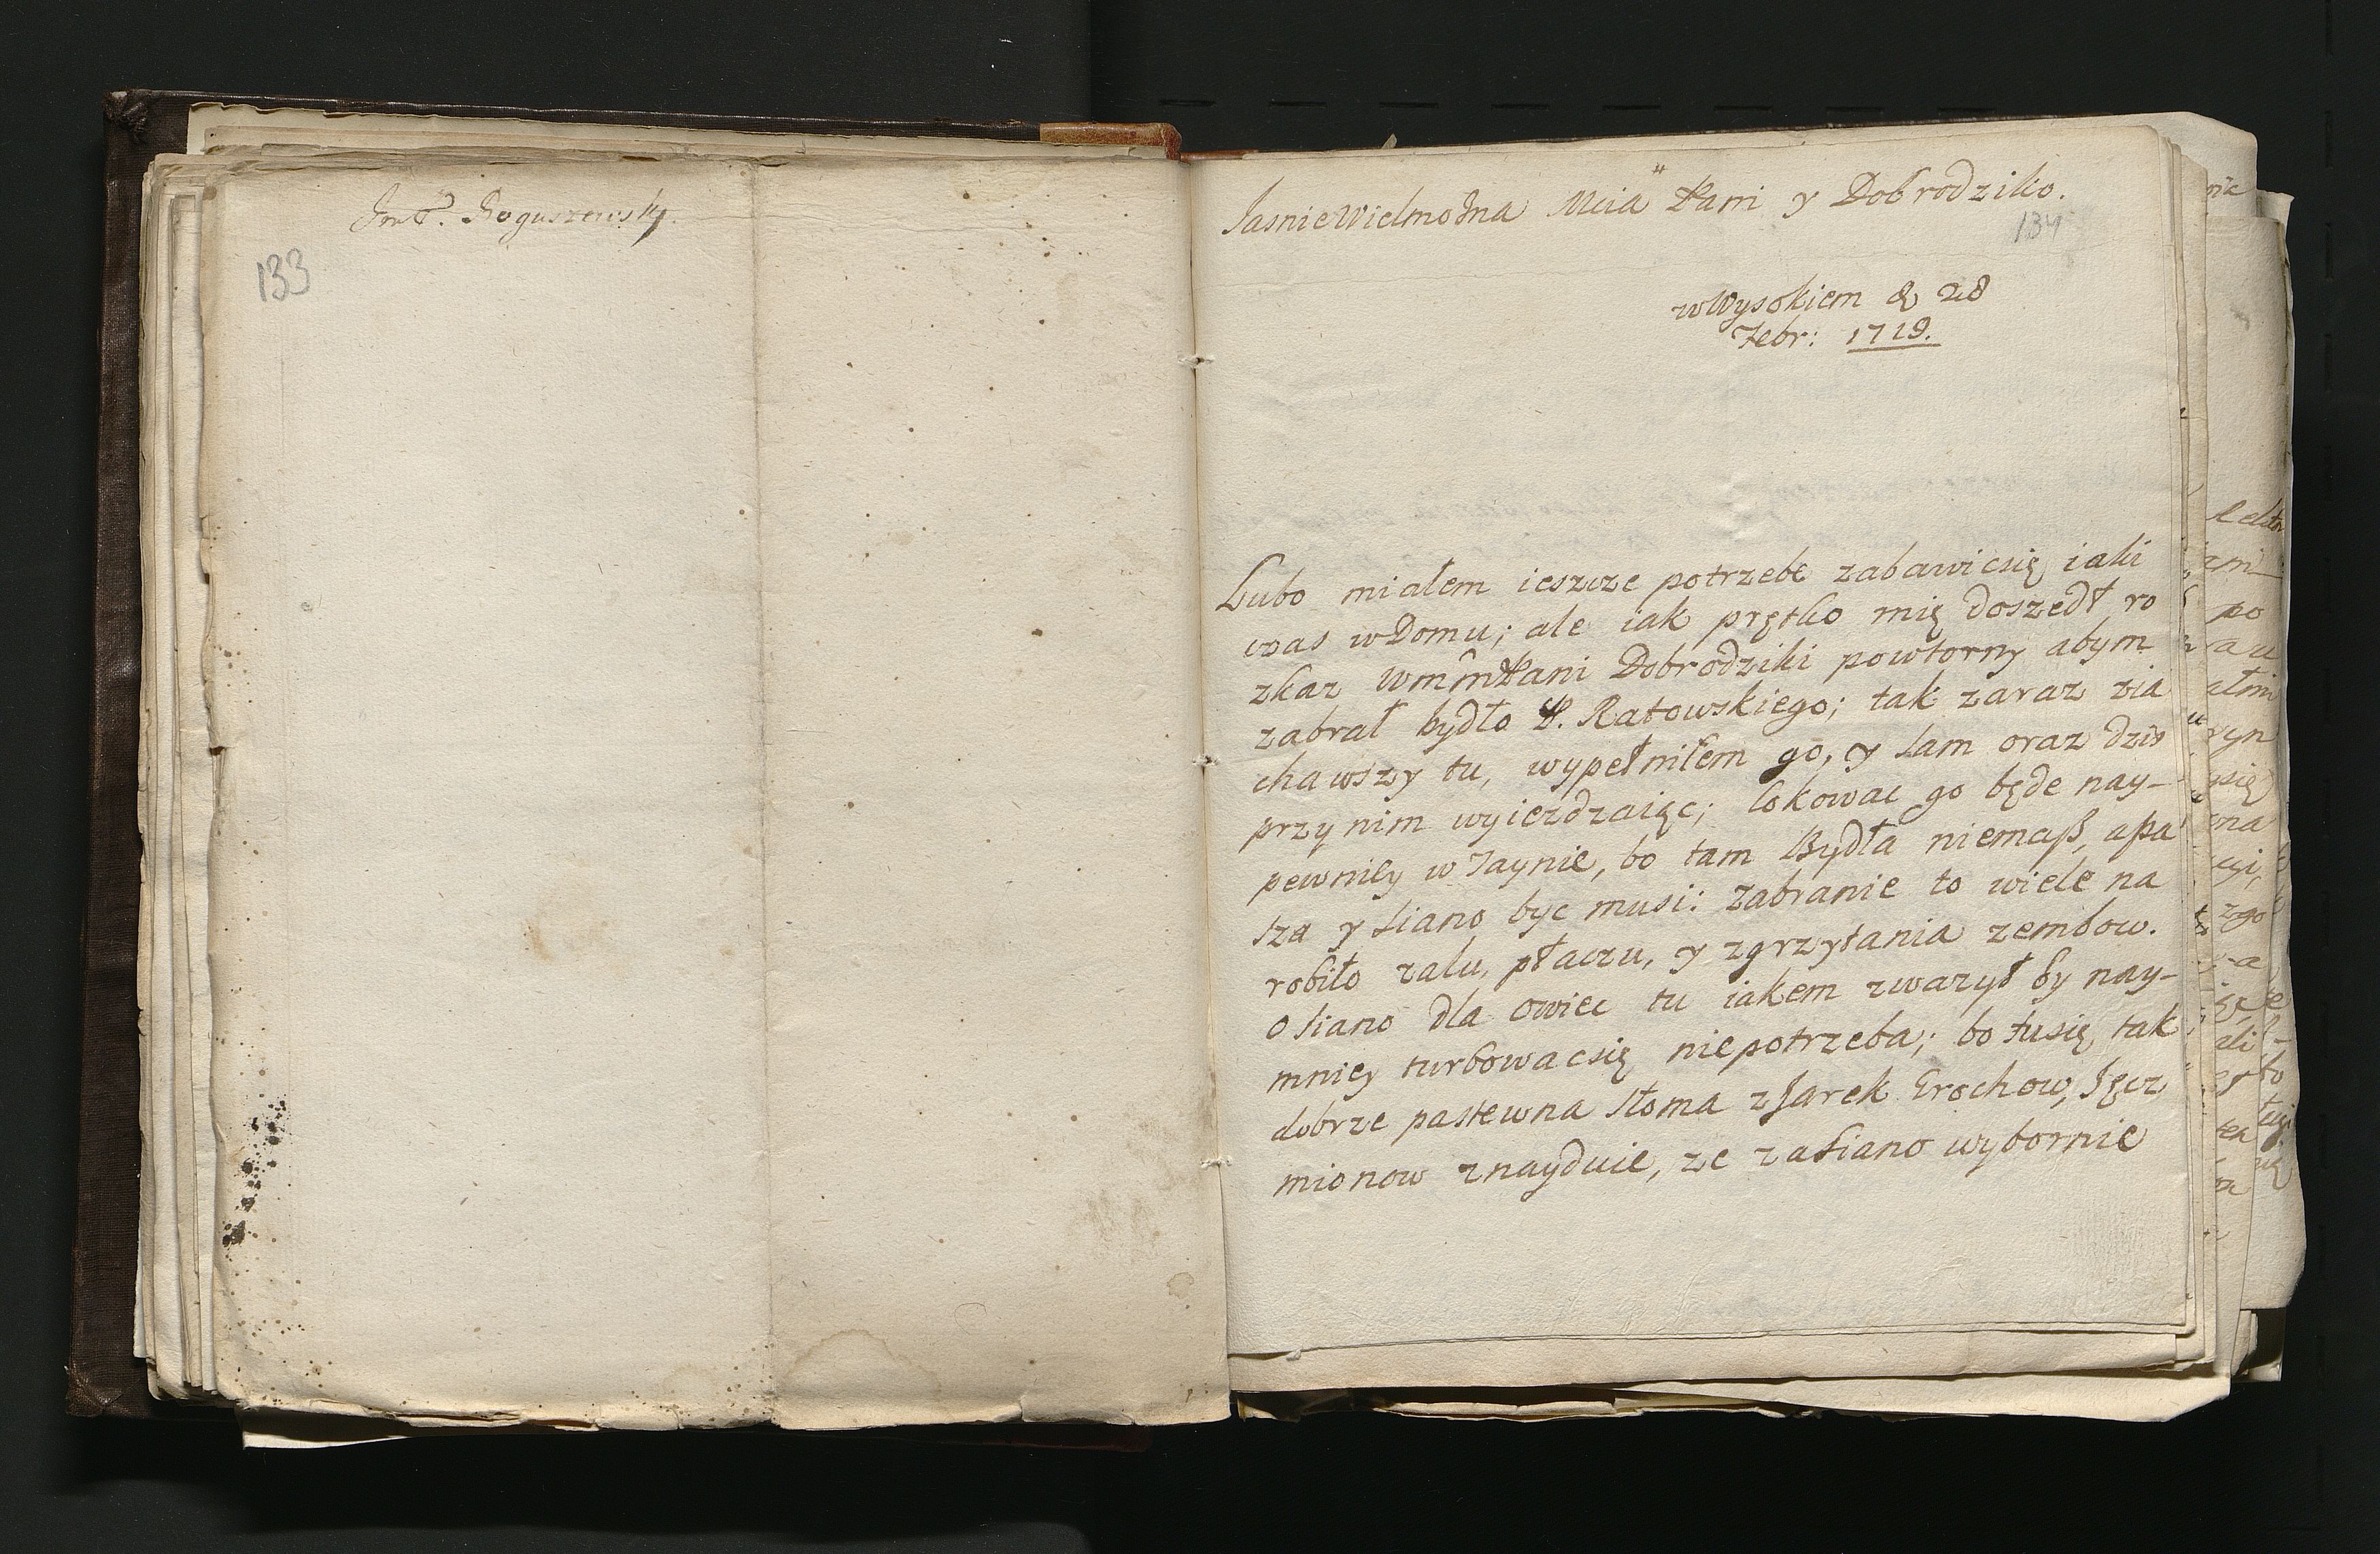 JmP. Boguszewsky.
133
JasnieWielmożna Mcia Pani y Dobrodziko.
134
wWysokiem d 28
Febr: 1719.
Lubo miałem ieszcze potrzebe zabawicsię iaki
czas wDomu; ale iak prętko mię doszedł ro
zkaz WmmPani Dobrodziki powtorny abym
zabrał bydło P. Ratowskiego; tak zaraz zia
chawszy tu, wypełniłem go, y sam oraz dzis
przy nim wyiezdzaiąc; lokowac go będe nay-
pewniey w Jaynie, bo tam Bydła niemaß, a Pa
sza y siano byc musi: zabranie to wiele na
robiło zalu, płaczu, y zgrzytania zembow.
O siano dla owiec tu iakem zwazył by nay-
mniey turbowacsię niepotrzeba; bo tusię tak
dobrze pastewna słoma z Jarek Grochow, Jęcz
mionow znayduie, ze zasiano wybornie